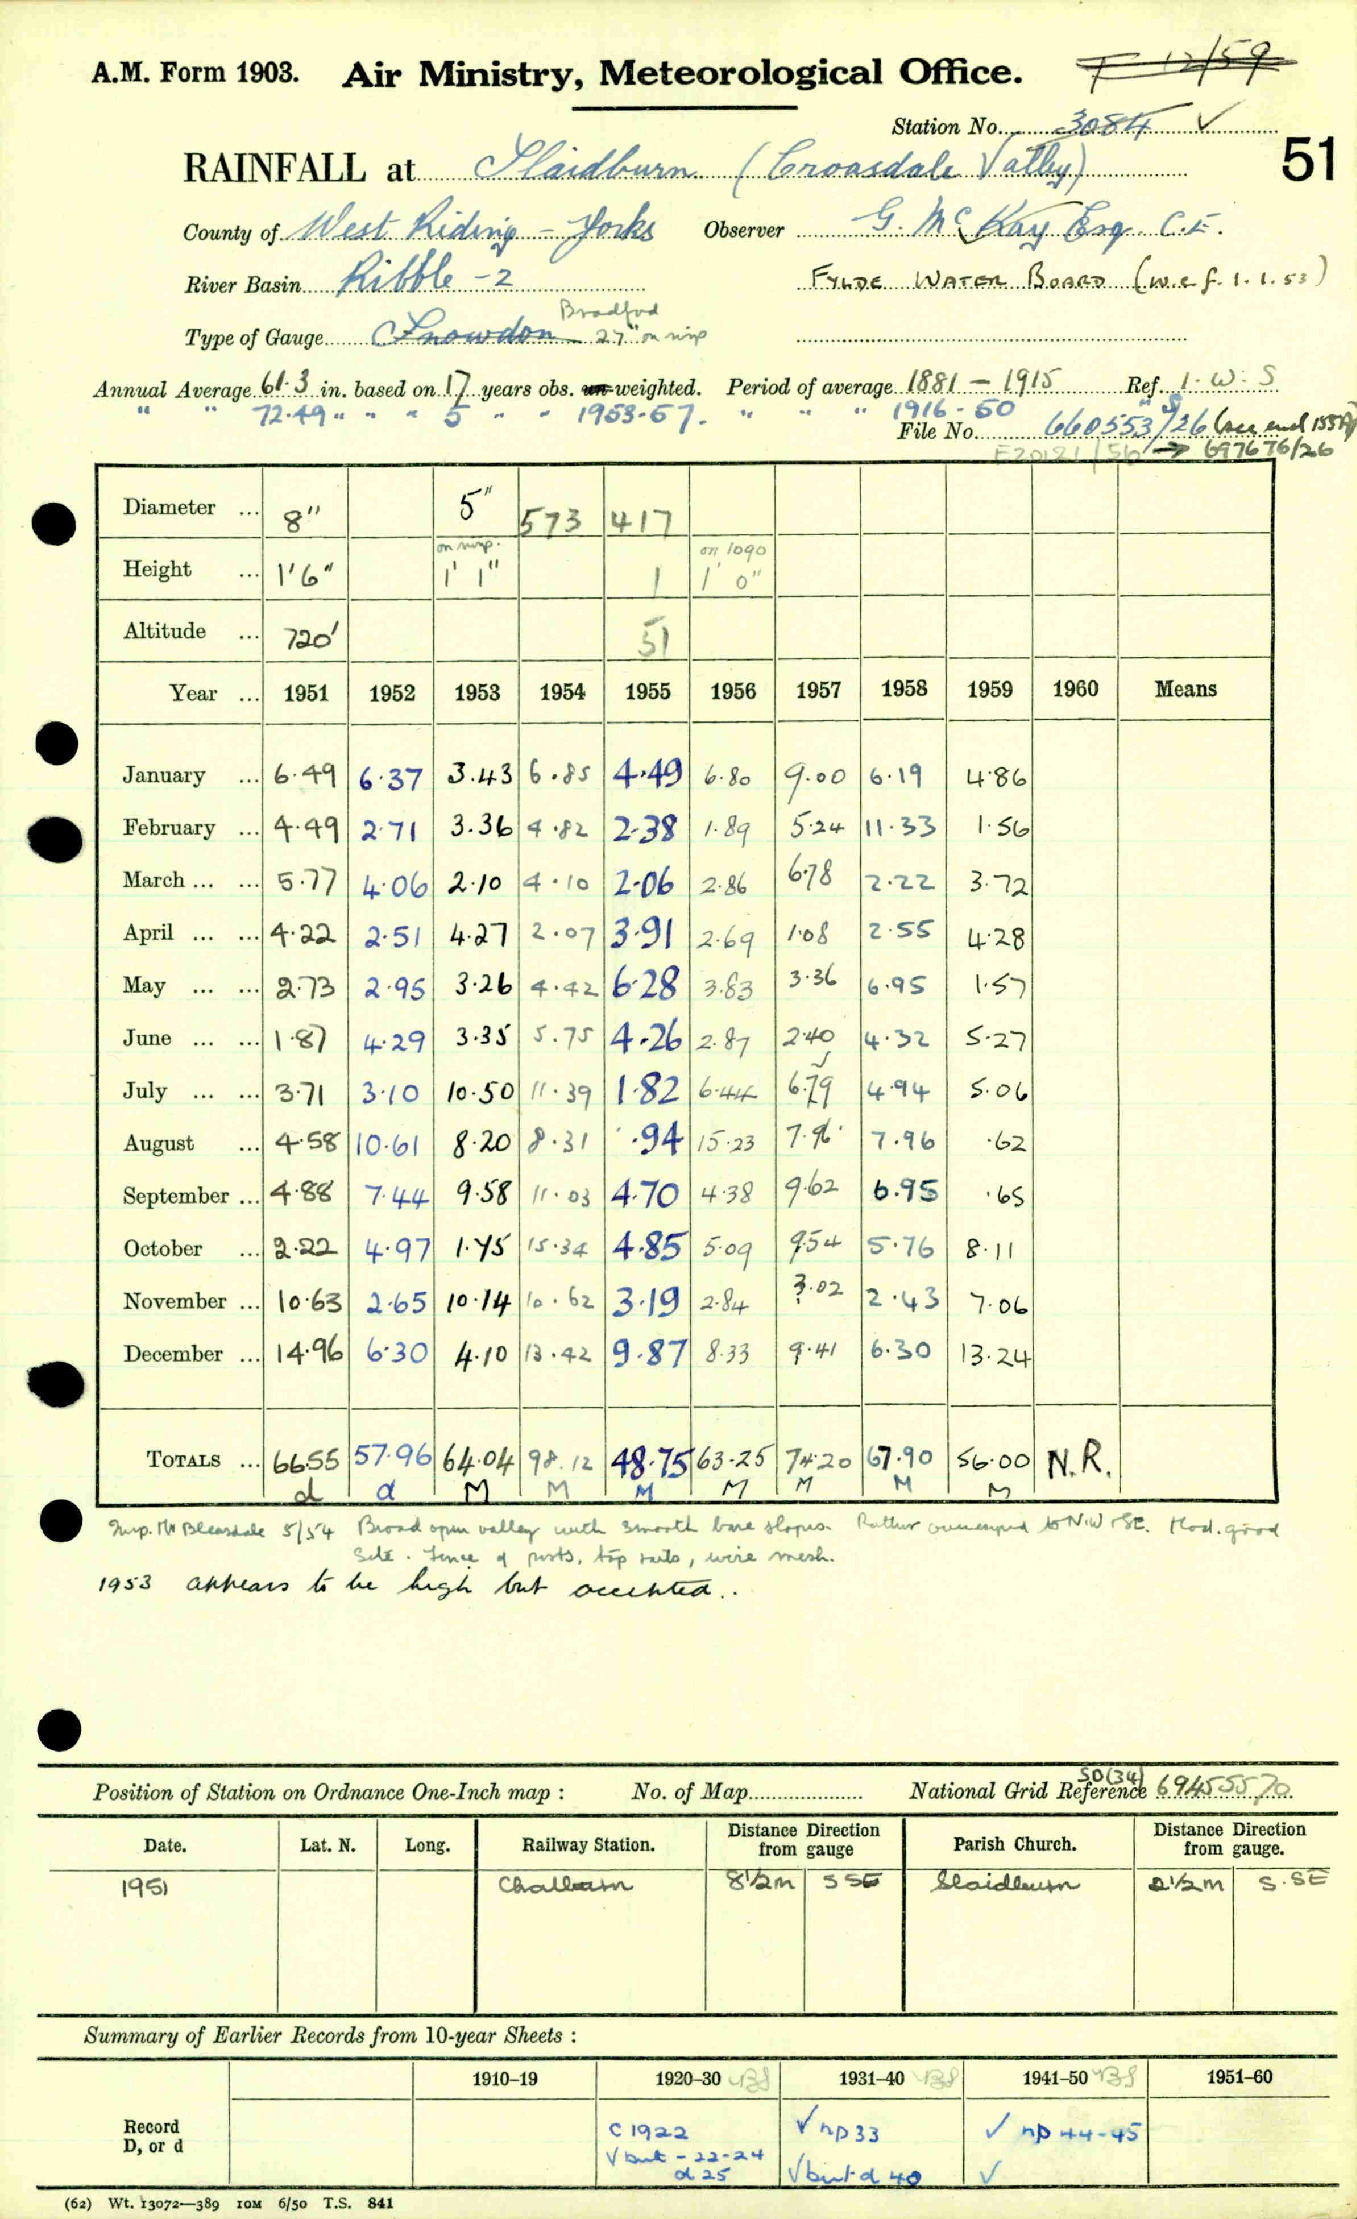 A.M. Form 1903. Air Ministry, Meteorological Office. F 12/59
Station No. 3084 ✓
51
RAINFALL at Slaidburn (Croasdale Valley)
County of West Riding - Yorks Observer G. McKay Esq. C.E.
River Basin Ribble - 2 FYLDE WATER BOARD (w.e.f. 1.1.53)
Bradford
Type of Gauge Snowdon 27" on insp
Annual Average 61.3 in. based on 17 years obs. un-weighted. Period of average 1881 - 1915 Ref. I.W.S
" " 72.49 " " " 5 " " 1953-57. " " " 1916-50 " S
File No. 660553/26 (see end 1554)
E20181/56 → 697676/26
Diameter ... 8" 5" 573 417
on insp. on 1090
Height ... 1'6" 1' 1" 1 1' 0"
Altitude ... 720' 51
Year ... 1951 1952 1953 1954 1955 1956 1957 1958 1959 1960 Means
January ... 6.49 6.37 3.43 6.85 4.49 6.80 9.00 6.19 4.86
February ... 4.49 2.71 3.36 4.82 2.38 1.89 5.24 11.33 1.56
March ... ... 5.77 4.06 2.10 4.10 2.06 2.86 6.78 2.22 3.72
April ... ... 4.22 2.51 4.27 2.07 3.91 2.69 1.08 2.55 4.28
May ... ... 2.73 2.95 3.26 4.42 6.28 3.83 3.36 6.95 1.57
June ... ... 1.87 4.29 3.35 5.75 4.26 2.87 2.40 4.32 5.27
July ... ... 3.71 3.10 10.50 11.39 1.82 6.44 6.79 4.94 5.06
August ... 4.58 10.61 8.20 8.31 .94 15.23 7.96 7.96 .62
September ... 4.88 7.44 9.58 11.03 4.70 4.38 9.62 6.95 .65
October ... 2.22 4.97 1.75 15.34 4.85 5.09 9.54 5.76 8.11
November ... 10.63 2.65 10.14 10.62 3.19 2.84 3.02 2.43 7.06
December ... 14.96 6.30 4.10 13.42 9.87 8.33 9.41 6.30 13.24
TOTALS ... 66.55 57.96 64.04 98.12 48.75 63.25 74.20 67.90 56.00 N.R.
d d M M M M M M M
Insp. Mr Bleasdale 5/54 Broad open valley with smooth bare slopes. Rather overexposed to N.W. + SE. Mod. good
site. Fence of posts, top rails, wire mesh.
1953 appears to be high but accepted..
Position of Station on Ordnance One-Inch map : No. of Map National Grid Reference SD(34) 69455570
Date. Lat. N. Long. Railway Station. Distance from gauge Direction Parish Church. Distance from gauge. Direction
1951 Chatburn 8½m SSE Slaidburn 2½m S.SE
Summary of Earlier Records from 10-year Sheets :
1910–19 1920–30 1931–40 1941–50 1951–60
Record
D, or d
C 1922 ✓ np 33 ✓ np 44-45
✓ but - 22-24
d 25 ✓ but d 40 ✓
(62) Wt. 13072—389 10M 6/50 T.S. 841